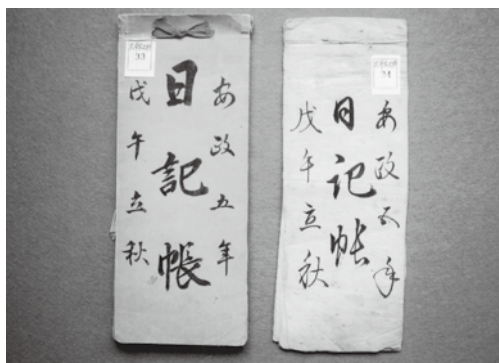 安政五年
日記帳
戊午立秋
33
安政五年
日記帳
戊午立秋
34